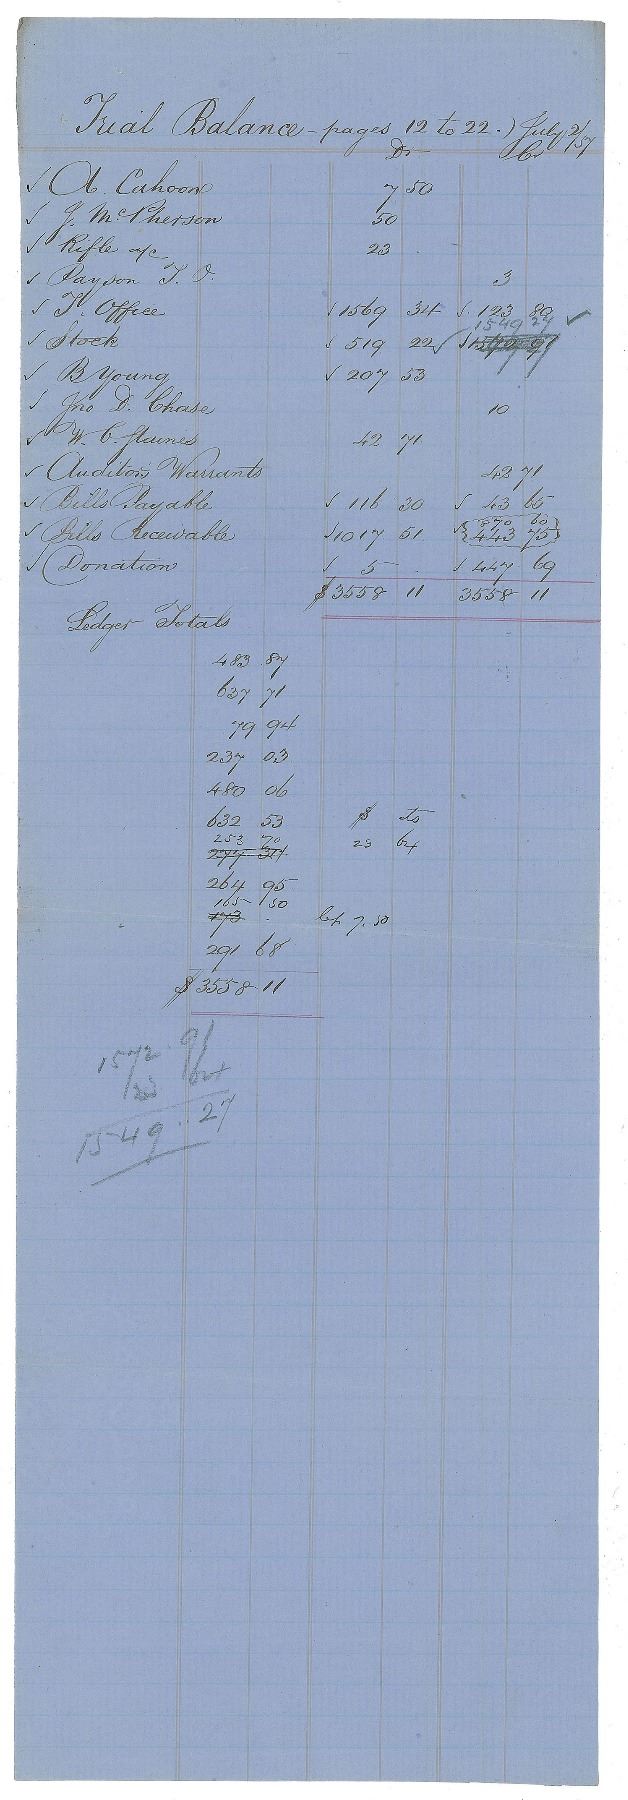 Trial Balance - pages 12 to 22.) July 2/57
Dr Cr
√ A. Cahoon 7 50
√ J. McPherson 50
√ Rifle a/c 23
√ Payson T. O. 3
√ T. Office √ 1569 34 √ 123 80 ✓
1549 27
√ Stock √ 519 22 √ √ 1572 91
√ B Young √ 207 53
√ Jno D. Chase 10
√ W. C. Staines 42 71
√ Auditors Warrants 42 71
√ Bills Payable √ 116 30 √ 43 65
870 60
√ Bills Receivable √ 1017 51 √ { 443 75 }
√ Donation √ 5 √ 447 69
$ 3558 11 3558 11
Ledger Totals
483 87
637 71
79 94
237 03
480 06
632 53 $ cts
253 70 23 64
277 34
264 95
165 50
173 Cr 7.50
291 68
$ 3558 11
1572 91
23 64
1549 .. 27